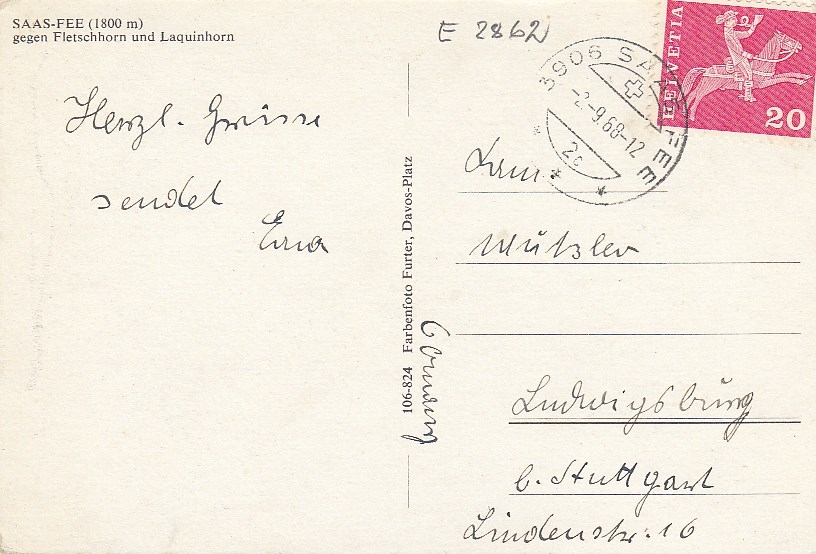 SAAS-FEE (1800 m)
gegen Fletschhorn und Laquinhorn
E 2862
HELVETIA
20
3906 SAAS-FEE
-2.-9.68-12
2c
Herzl. Grüsse
sendet
Erna
106-824 Farbenfoto Furter, Davos-Platz
Ludwigsburg
b. Stuttgart
Lindenstr. 16